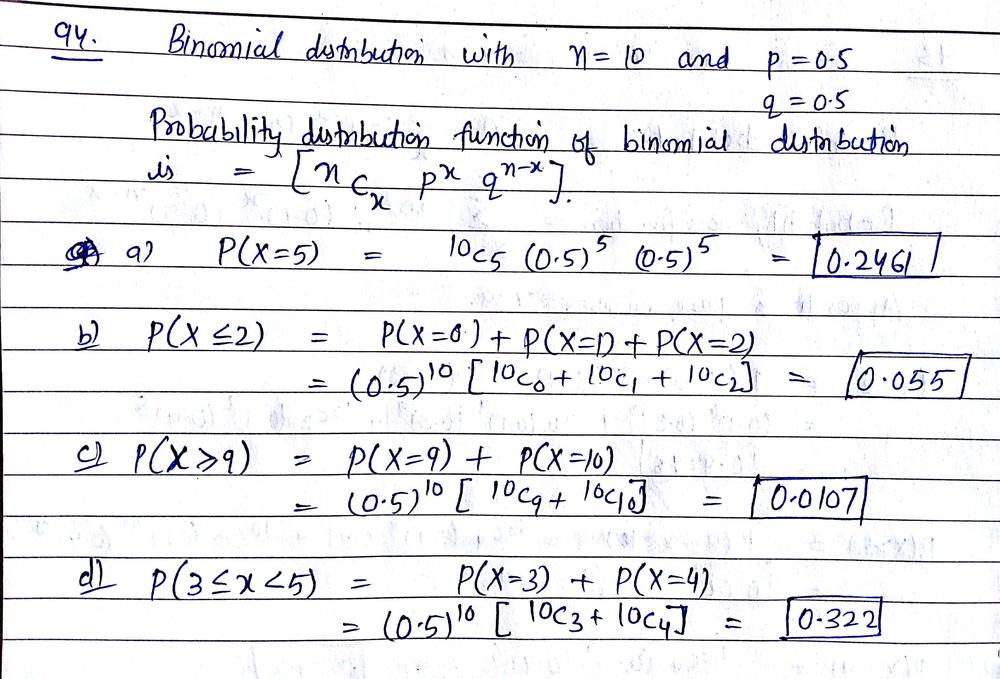 94. Binomial distribution with n = 10 and p = 0.5
q = 0.5
Probability distribution function of binomial distribution
is = [nCx p^x q^(n-x)].
a) P(X=5) = 10C5 (0.5)^5 (0.5)^5 = 0.2461
b) P(X ≤ 2) = P(X=0) + P(X=1) + P(X=2)
= (0.5)^10 [10C0 + 10C1 + 10C2] = 0.055
c) P(X ≥ 9) = P(X=9) + P(X=10)
= (0.5)^10 [10C9 + 10C10] = 0.0107
d) P(3 ≤ x < 5) = P(X=3) + P(X=4)
= (0.5)^10 [10C3 + 10C4] = 0.322